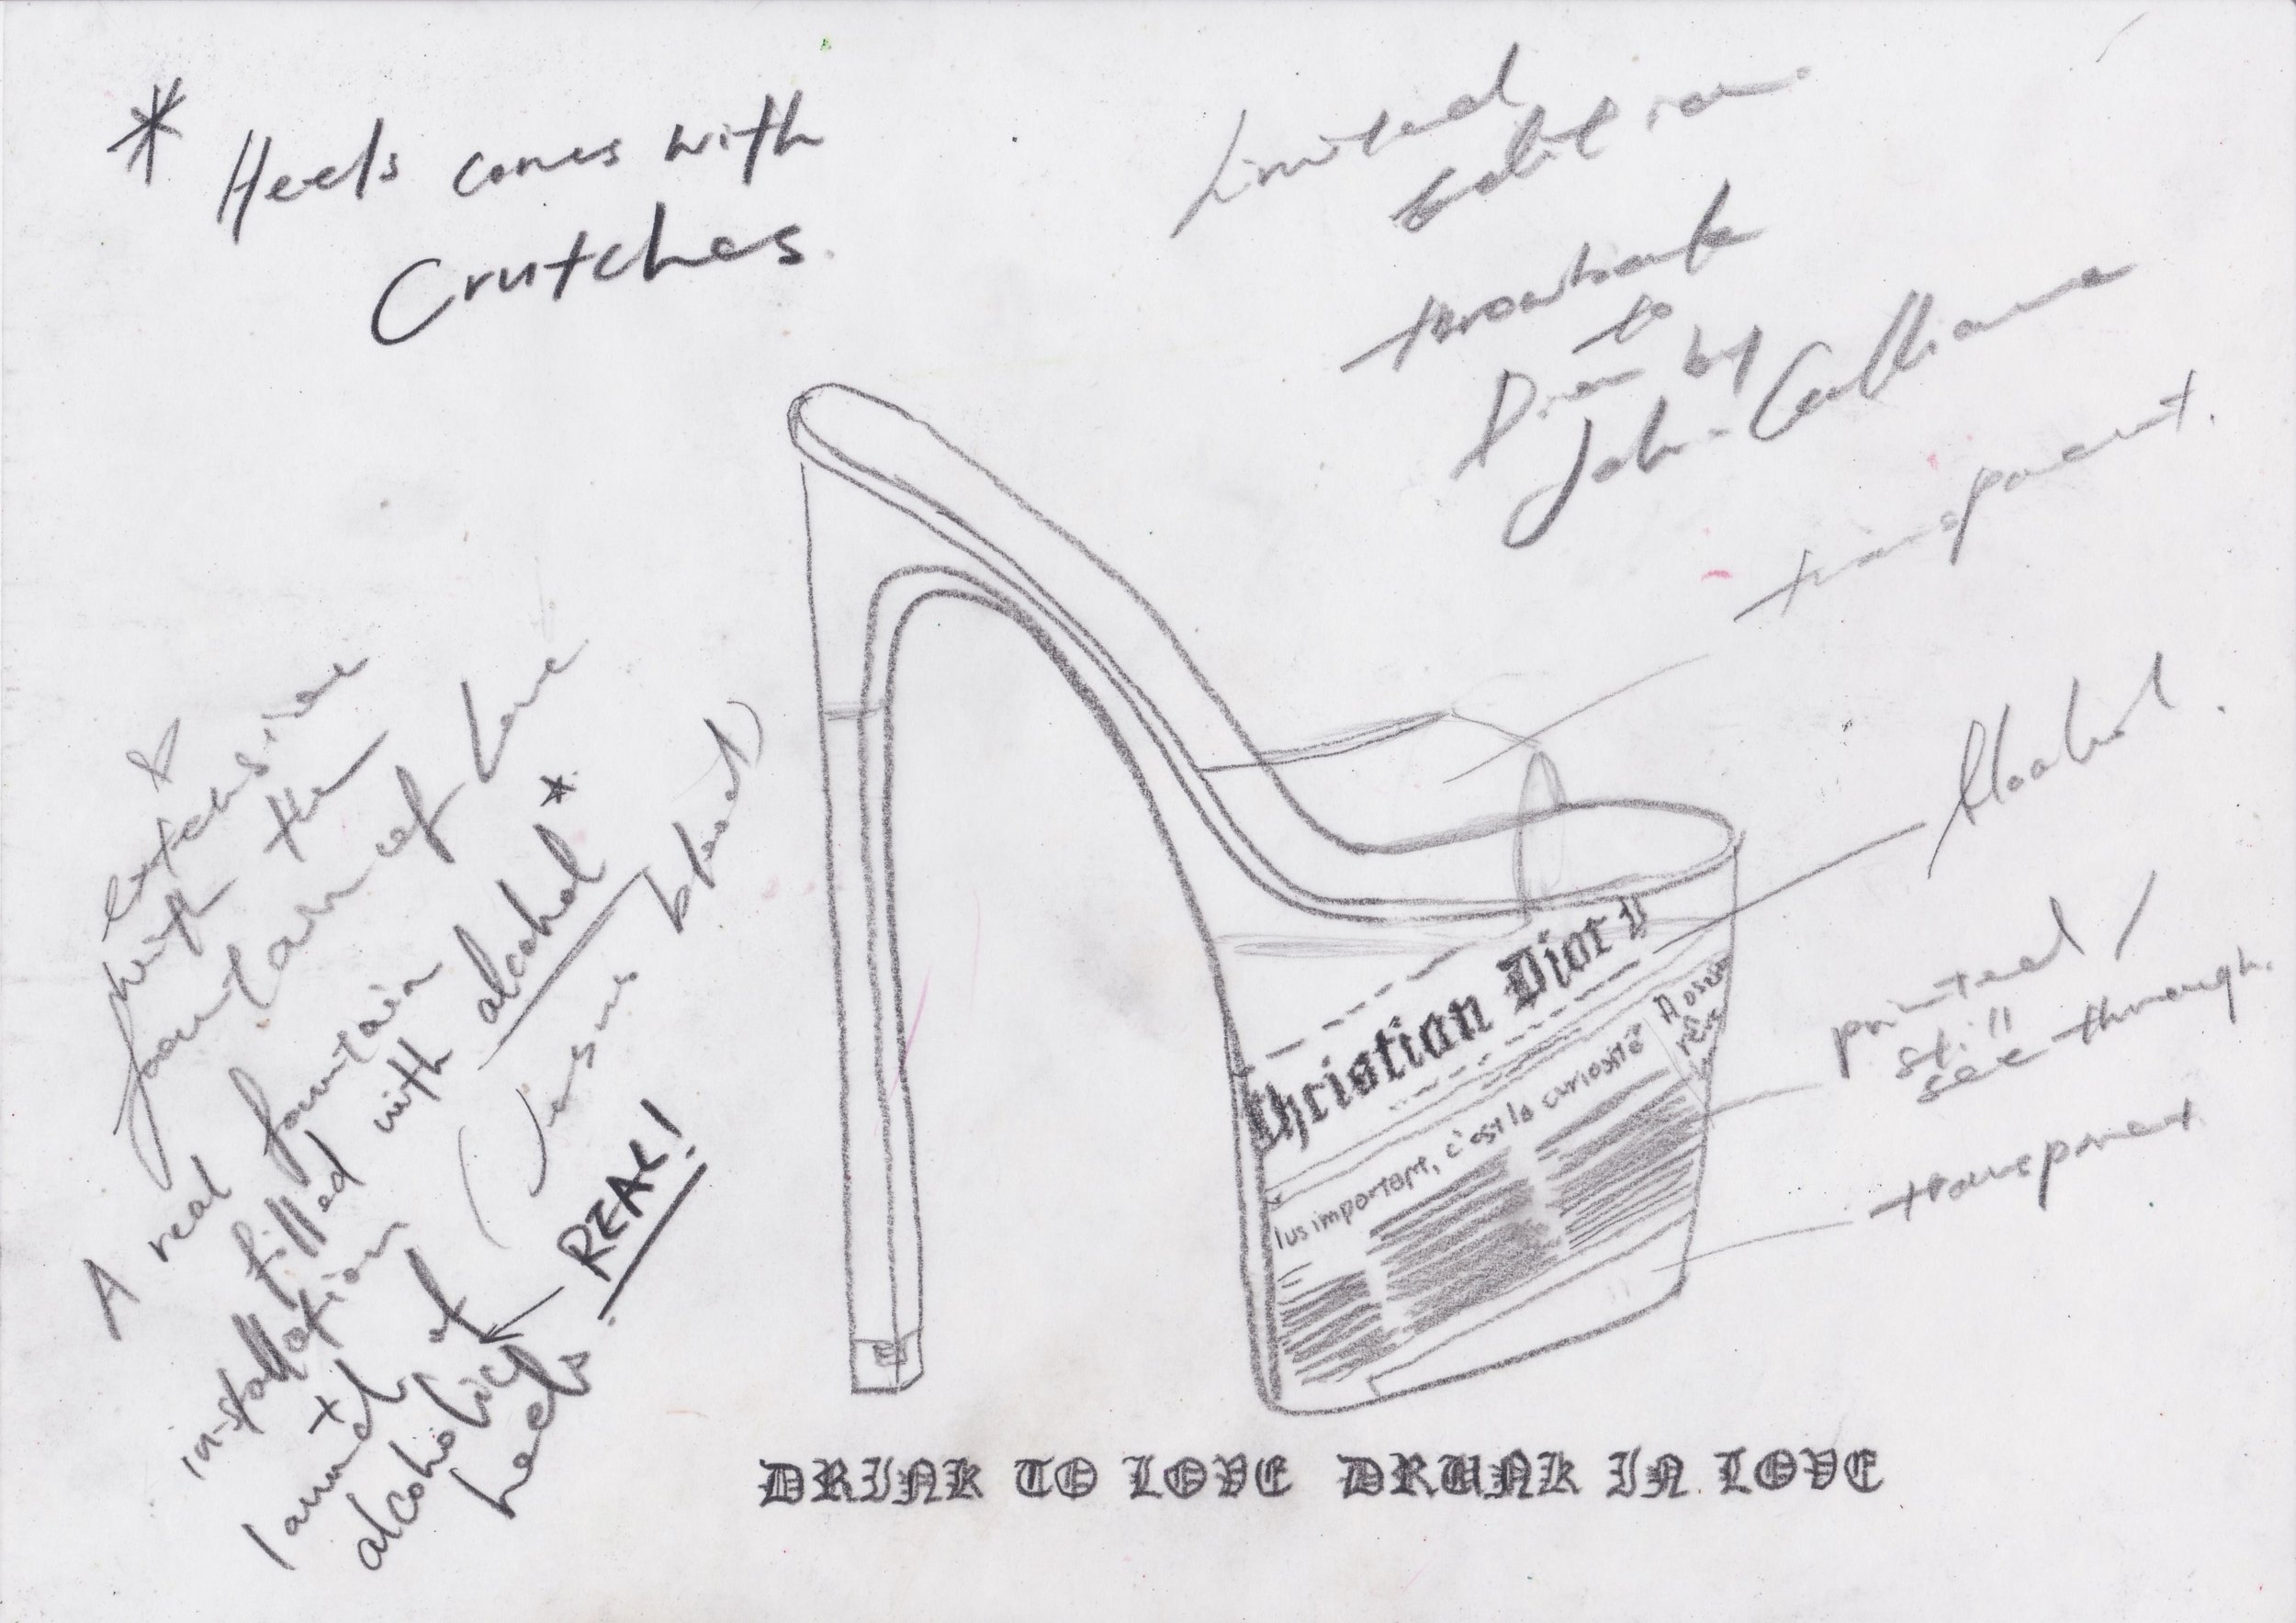 * Heels comes with
Crutches.
Limited
Edition
throwback
to
Dior by
John Galliano
transparent.
Alcohol.
printed /
still
see through.
transparent.
extension
the
fountain of love
A real fountain
filled with alcohol*
(Jesus blood)
installation
REAL!
launch of
alcoholic
heels
Christian Dior D
lus important, c'est la curiosité
DRINK TO LOVE DRUNK IN LOVE